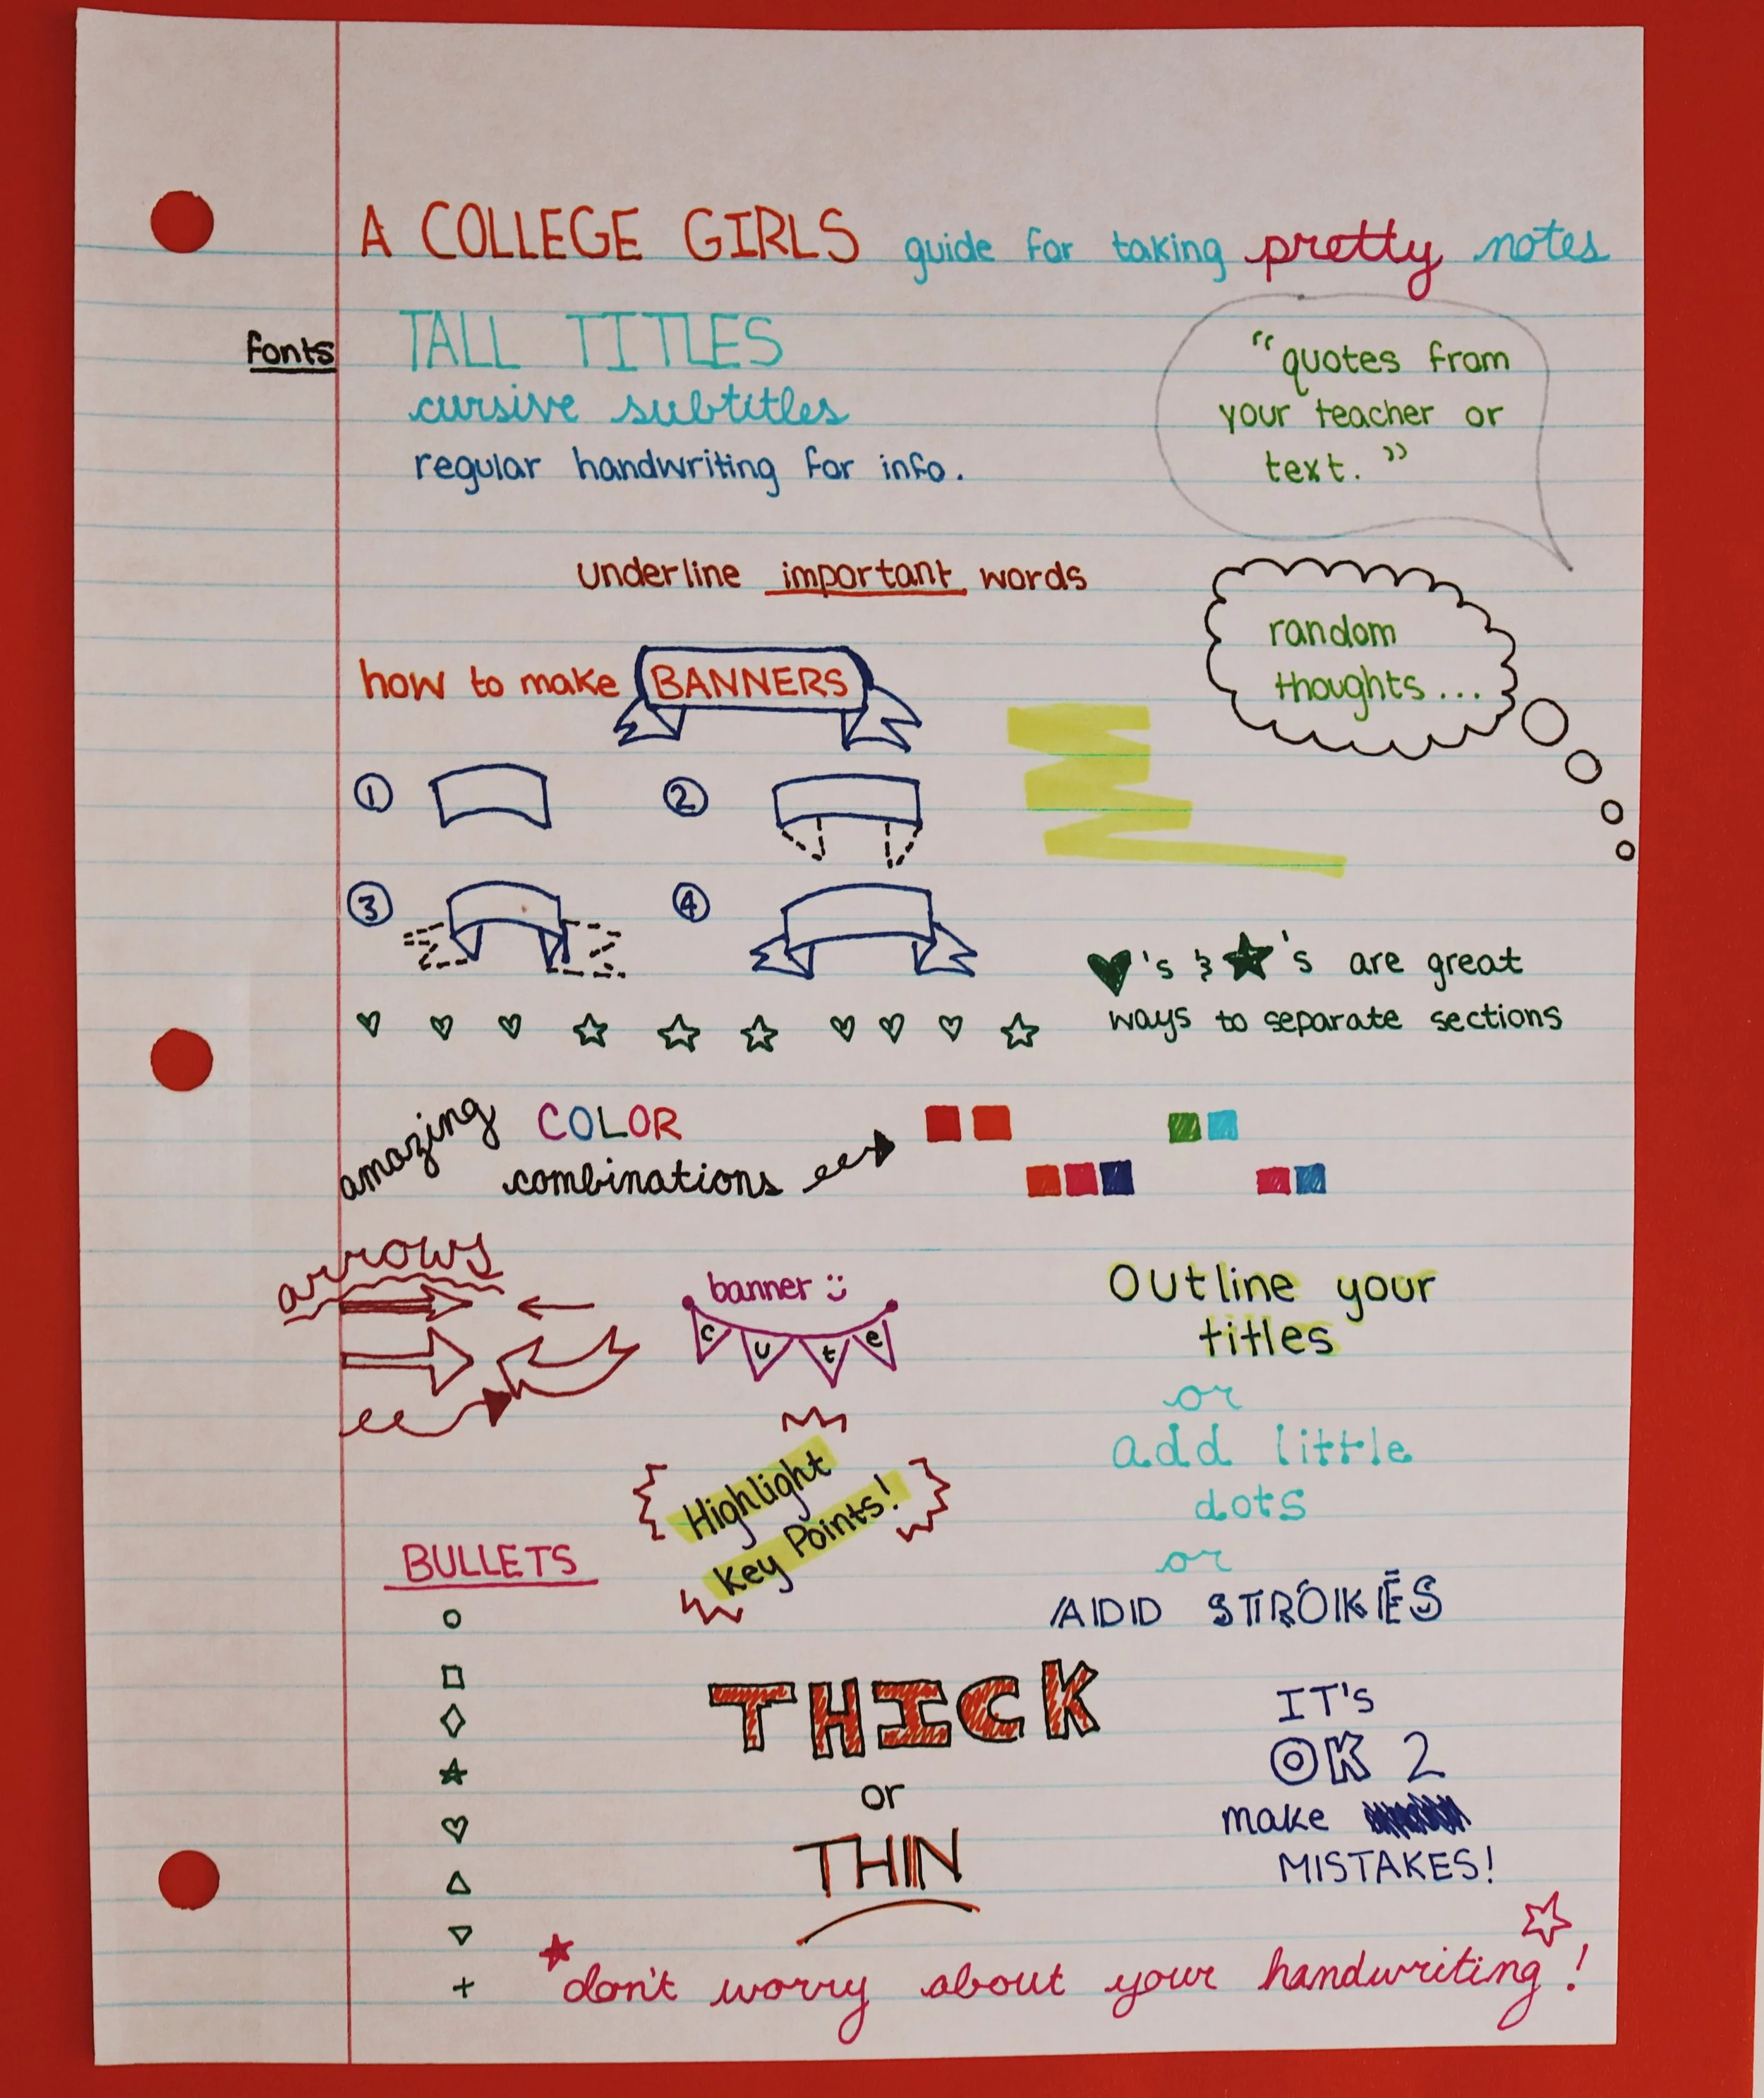 A COLLEGE GIRLS guide for taking pretty notes
fonts
TALL TITLES
cursive subtitles
regular handwriting for info.
"quotes from
your teacher or
text."
underline important words
random
thoughts...
how to make BANNERS
1 2
3 4
♥'s & ★'s are great
ways to separate sections
amazing COLOR
combinations
arrows
banner :)
cute
Outline your
titles
or
add little
dots
or
ADD STROKES
Highlight
Key Points!
BULLETS
THICK
or
THIN
IT's
OK 2
make
MISTAKES!
don't worry about your handwriting!